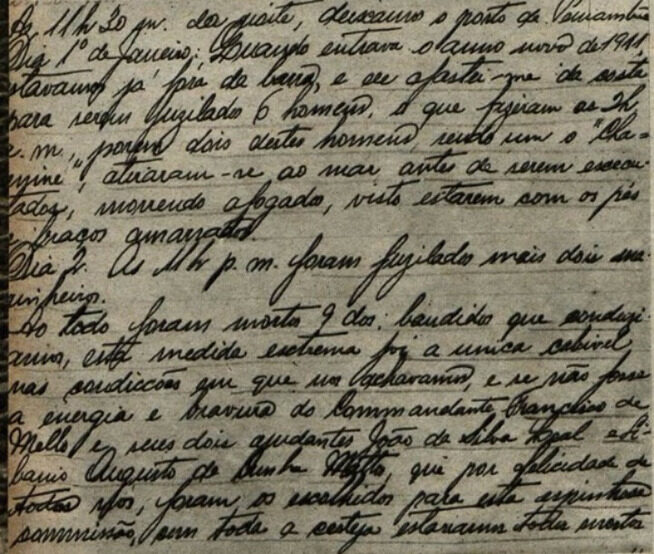 de 11 h 30 m. da noite, deixamos o porto de Pernambu
Dia 1º de Janeiro; Quando entrava o anno novo de 1911,
stavamos já fóra da barra, e eu afastei-me da costa
para serem fuzilados 6 homens, o que fizeram as 2h
a.m., porem dois destes homens, sendo um o "Cha-
miné", atiraram-se ao mar antes de serem execu-
tados, morrendo afogados, visto estarem com os pés
e braços amarrados.
Dia 2. As 11 h p.m. foram fuzilados mais dois ma-
rinheiros.
Ao todo foram mortos 9 dos bandidos que conduzi-
amos, esta medida extrema foi a unica cabivel
nas condicções em que nos achavamos, e se não fosse
a energia e bravura do Commandante Francisco de
Mello e seus dois ajudantes João da Silva Leal e Li-
banio Augusto da Cunha Mattos, que por felicidade de
todos nós, foram os escolhidos para esta espinhosa
commissão, com toda a certeza estariamos todos mortos